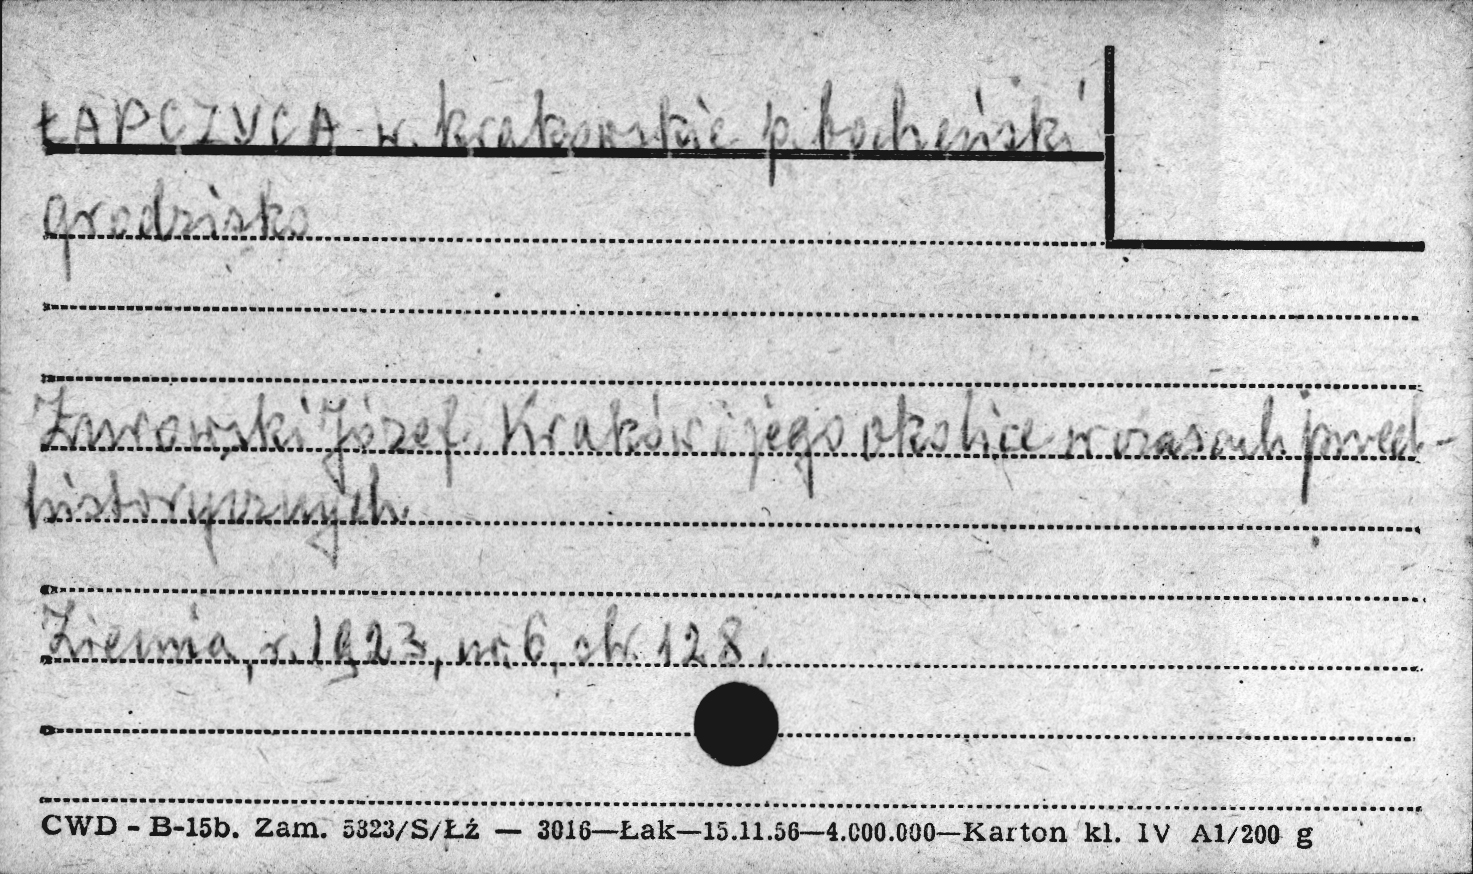 ŁAPCZYCA w. krakowskie p. bocheński
grodzisko
Żurowski Józef. Kraków i jego okolice w czasach przed-
historycznych.
Ziemia, r. 1923, nr. 6, str. 128.
CWD - B-15b. Zam. 5323/S/Łź — 3016—Łak—15.11.56—4.000.000—Karton kl. IV A1/200 g